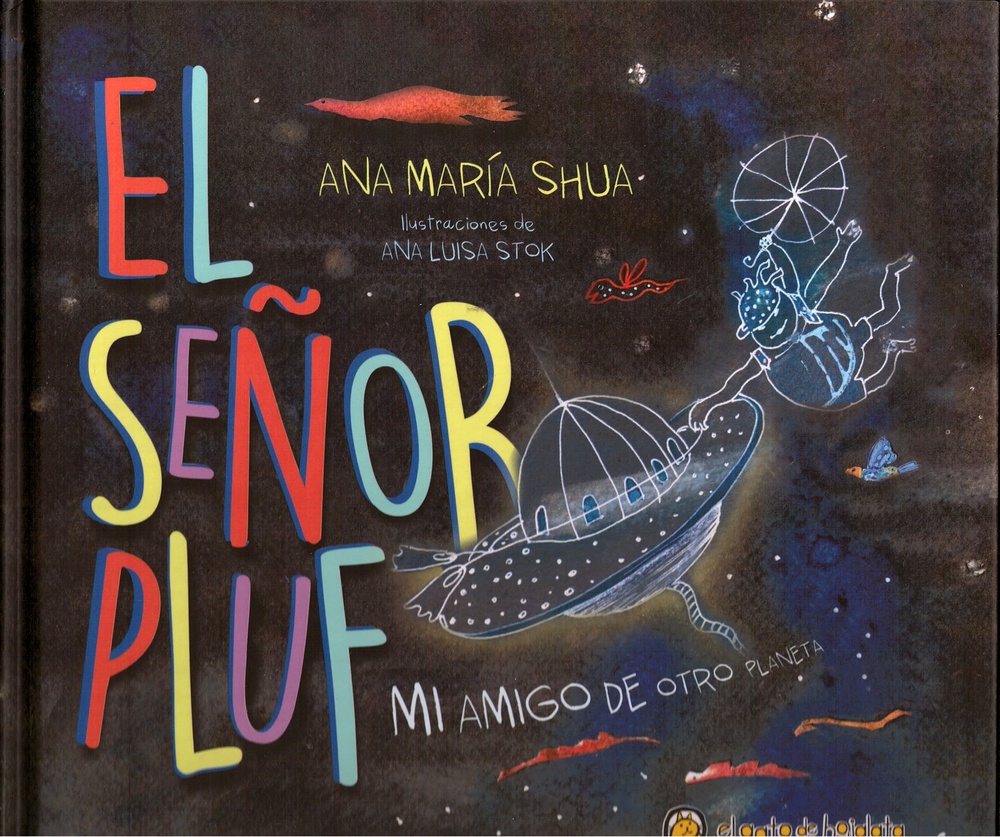 EL
SEÑOR
PLUF
ANA MARÍA SHUA
Ilustraciones de
ANA LUISA STOK
MI AMIGO DE OTRO PLANETA
el gato de hojalata